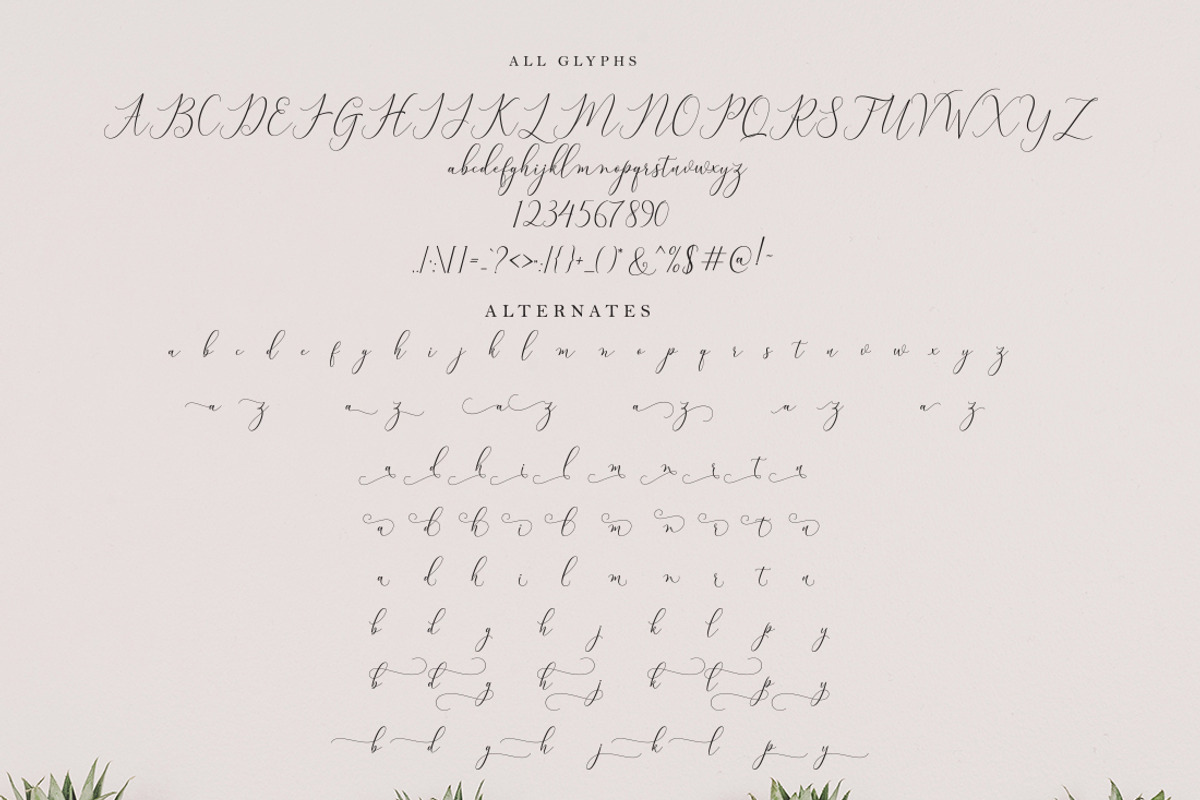 ALL GLYPHS
ABCDEFGHIJKLMNOPQRSTUVWXYZ
abcdefghijklmnopqrstuvwxyz
1234567890
&^%$#@!~
ALTERNATES
a b c d e f g h i j k l m n o p q r s t u v w x y z
a z a z a z a z a z a z
a d h i l m n r t u
a d h i l m n r t u
a d h i l m n r t u
b d g h j k l p y
b d g h j k l p y
b d g h j k l p y